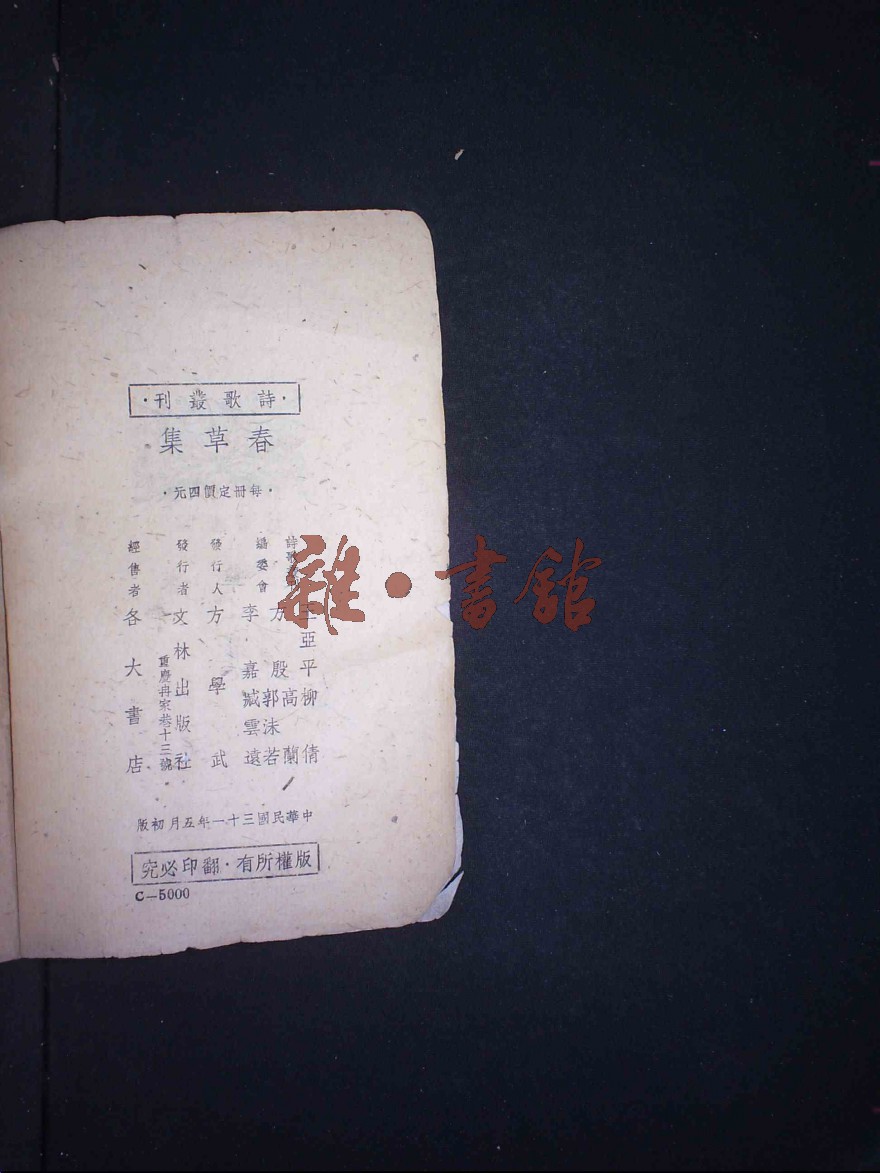 ·詩歌叢刊·
春草集
·每冊定價四元·
詩歌
編委會
王亞平 柳倩
方殷 高蘭
郭沫若
李嘉 臧雲遠
發行人 方學武
發行者 文林出版社
重慶冉家巷十三號
經售者 各大書店
中華民國三十一年五月初版
版權所有·翻印必究
C—5000
雜·書館